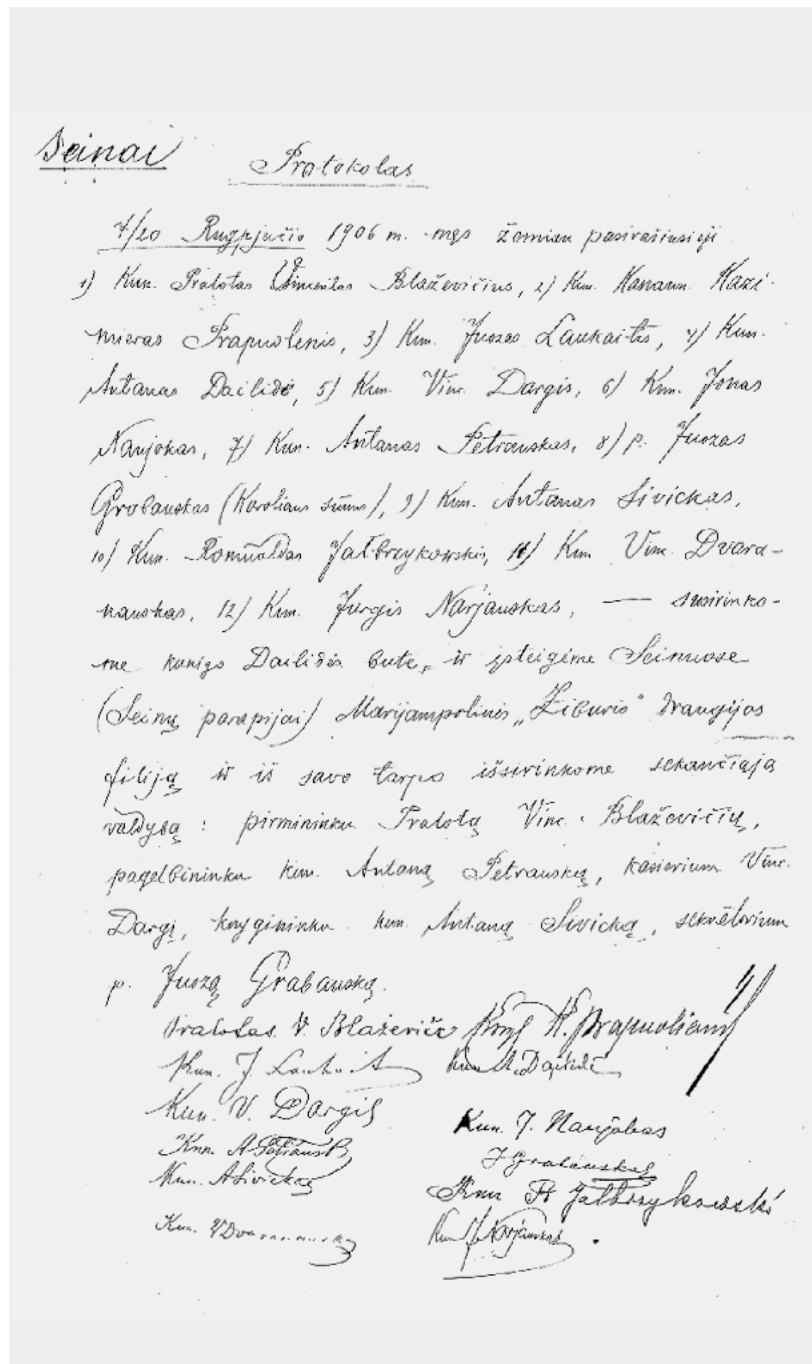 Seinai
Protokolas
7/20 Rugpjučio 1906 m. męs žemiau pasirašiusieji
1) Kun. Pralotas Vincentas Blaževičius, 2) Kun. Kanaun. Kazi-
mieras Prapuolenis, 3) Kun. Juozas Laukaitis, 4) Kun.
Antanas Dailidė, 5) Kun. Vinc. Dargis, 6) Kun. Jonas
Naujokas, 7) Kun. Antanas Petrauskas, 8) p. Juozas
Grabauskas (Karoliaus sūnus), 9) Kun. Antanas Sivickas,
10) Kun. Romualdas Jałbrzykowskis, 11) Kun Vinc. Dvara-
nauskas, 12) Kun. Jurgis Narjauskas, — susirinko-
me kunigo Dailidės bute, ir įsteigėme Seinuose
(Seinų parapijai) Marijampolinės „Žiburio" draugijos
filiją ir iš savo tarpo išsirinkome sekančiąją
valdybą: pirmininku Pralotą Vinc. Blaževičių,
pagelbininku kun. Antaną Petrauską, kasierium Vinc.
Dargį, knygininku kun. Antaną Sivicką, sekretorium
p. Juozą Grabauską.
Pralotas V. Blaževičč K. Prapuolenis
Kun. J. Laukaitis Kun. A. Dailidė
Kun. V. Dargis
Kun. J. Naujokas
Kun. A. Petrausk
J Grabauskas
Kun. A Sivickas
Kun R Jałbrzykowski
Kun. V Dvaranauskas Kun J. Narjauskas